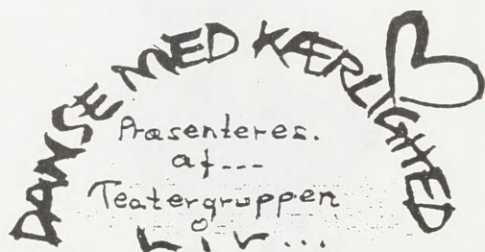 DANSE MED KÆRLIGHED
Præsenteres.
af---
Teatergruppen